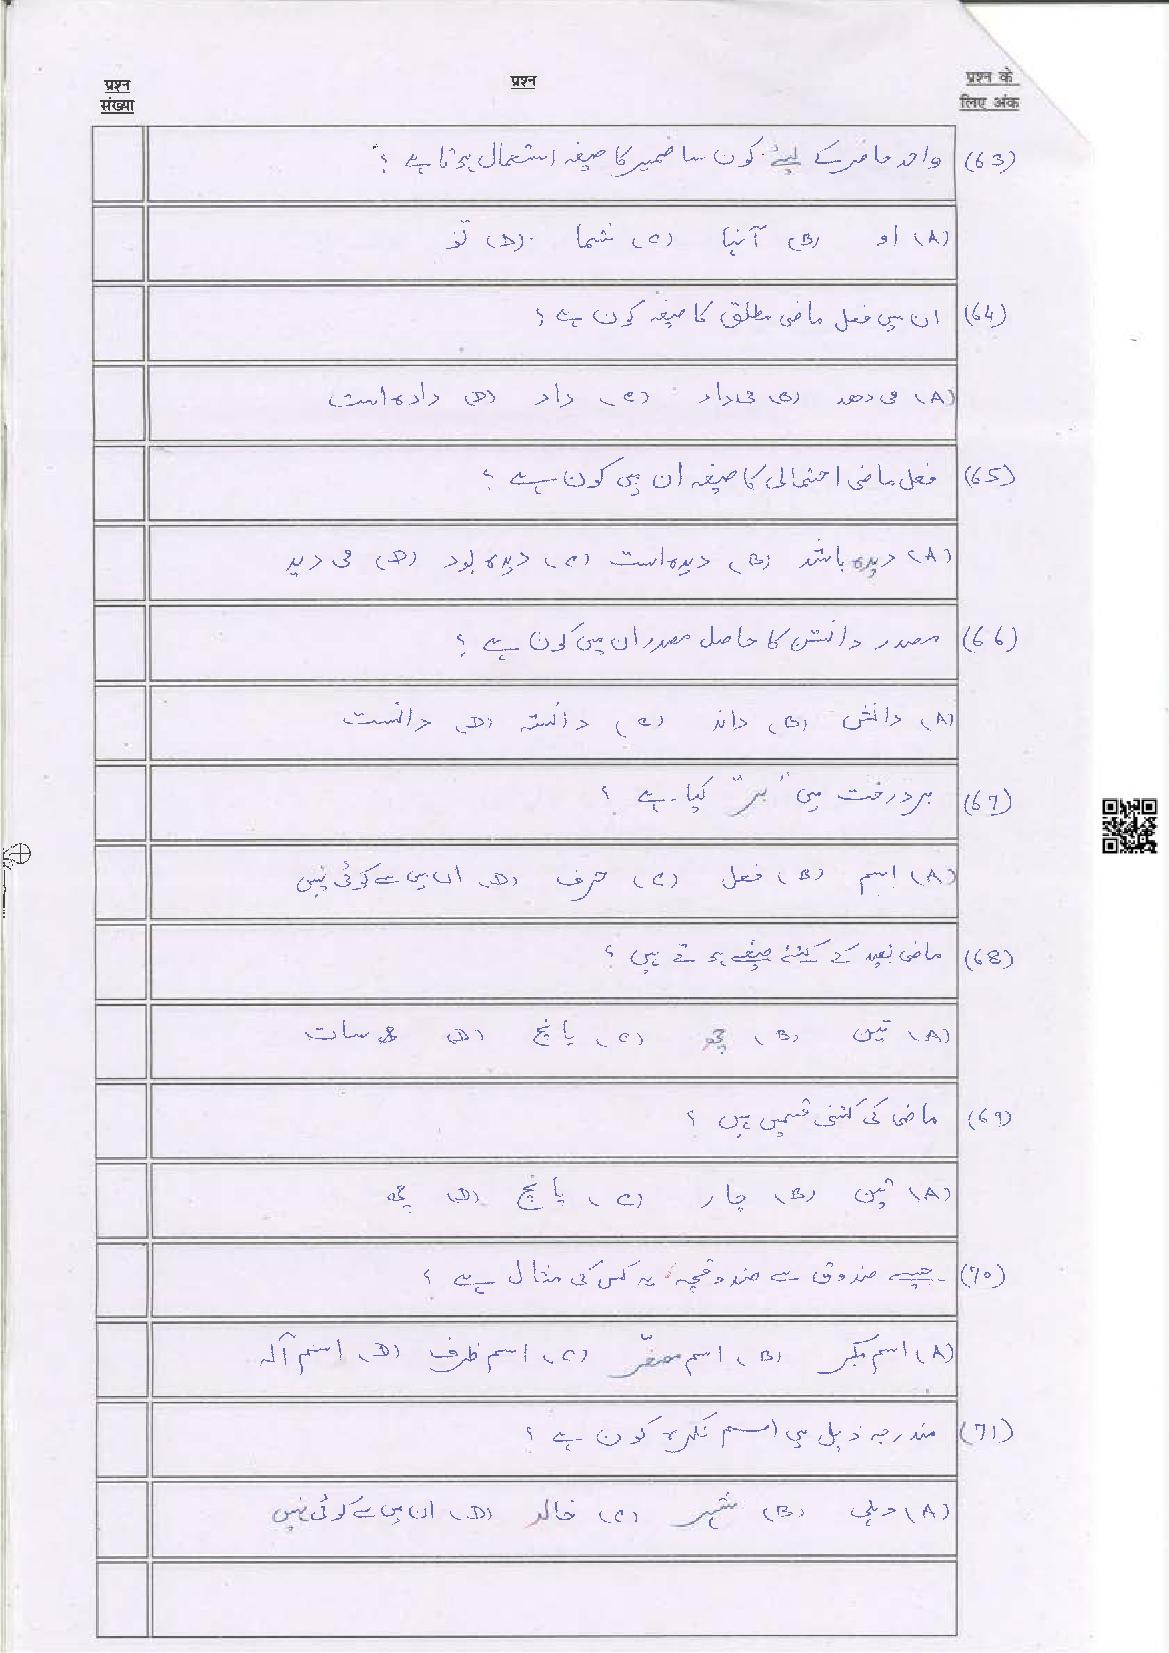 प्रश्न संख्या
प्रश्न
प्रश्न के लिए अंक
(63) واحد حاضر کے لیئے کون سا ضمیر کا صیغہ استعمال ہوتا ہے ؟
(A) او (B) آنہا (C) شما (D) تو
(64) ان میں فعل ماضی مطلق کا صیغہ کون ہے ؟
(A) می دهد (B) می داد (C) داد (D) دادہ است
(65) فعل ماضی احتمالی کا صیغہ ان میں کون ہے ؟
(A) دیدہ باشد (B) دیدہ است (C) دیدہ بود (D) می دید
(66) مصدر دانش کا حاصل مصدر ان میں کون ہے ؟
(A) دانش (B) داند (C) دانستہ (D) دانست
(67) بر درخت میں "بر" کیا ہے ؟
(A) اسم (B) فعل (C) حرف (D) ان میں سے کوئی نہیں
(68) ماضی بعید کے کتنے صیغے ہوتے ہیں ؟
(A) تین (B) چھ (C) پانچ (D) سات
(69) ماضی کی کتنی قسمیں ہیں ؟
(A) تین (B) چار (C) پانچ (D) چھ
(70) جیسے صندوق سے صندوقچہ یہ کس کی مثال ہے ؟
(A) اسم مکبر (B) اسم مصغّر (C) اسم ظرف (D) اسم آلہ
(71) مندرجہ ذیل میں اسم نکرہ کون ہے ؟
(A) دہلی (B) شہر (C) خالد (D) ان میں سے کوئی نہیں